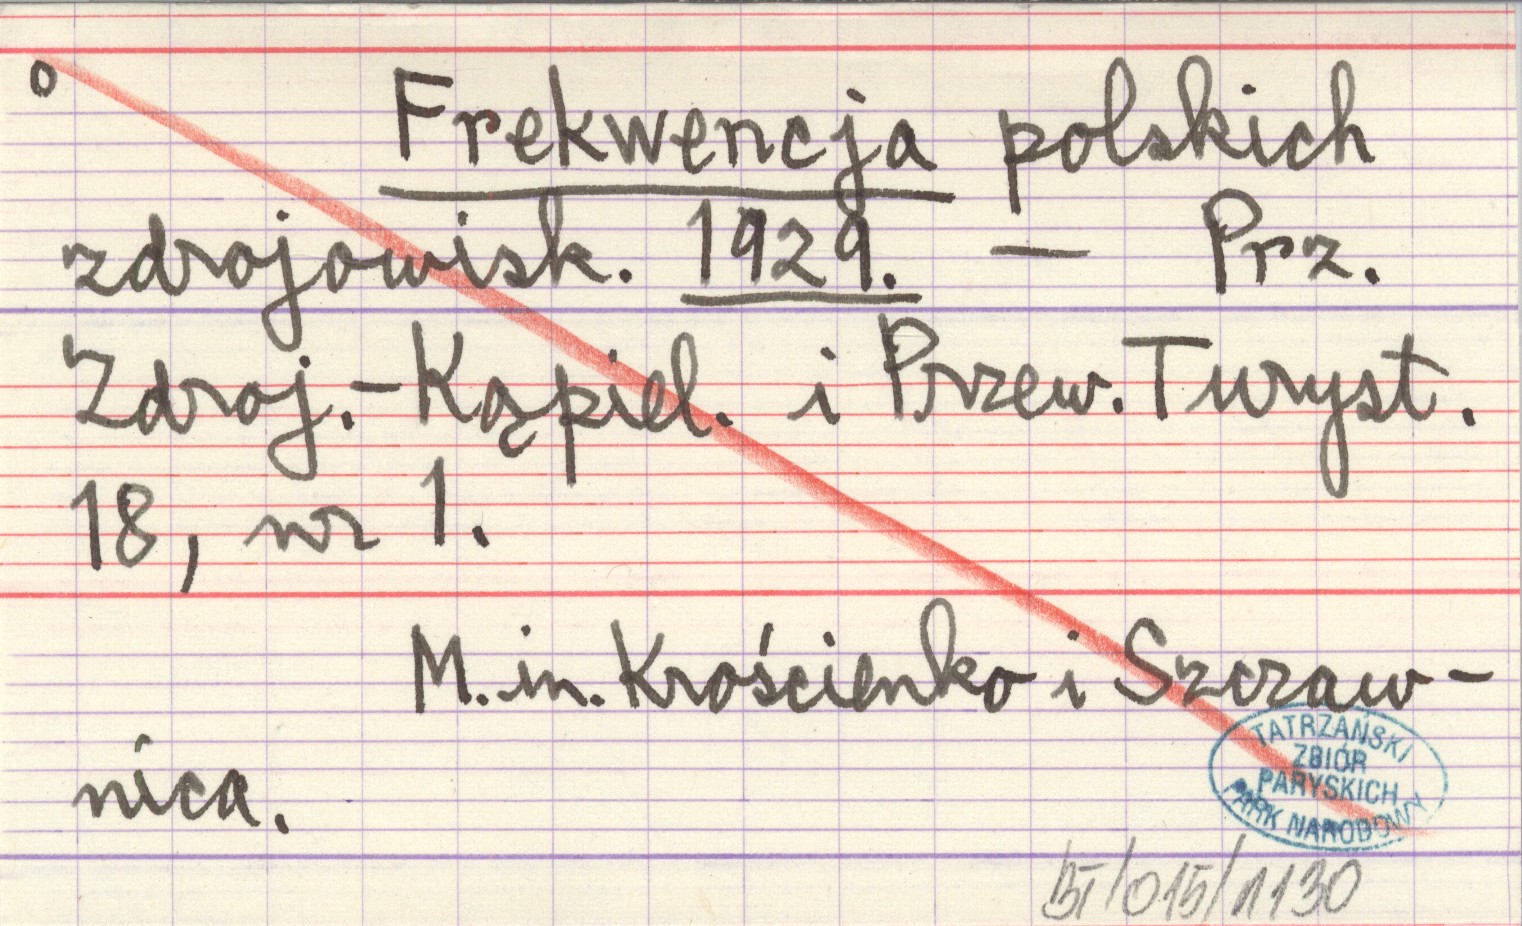 o
Frekwencja polskich
zdrojowisk. 1929. — Prz.
Zdroj.-Kąpiel. i Przew. Turyst.
18, nr 1.
M. in. Krościenko i Szczaw-
nica.
TATRZAŃSKI
ZBIÓR
PARYSKICH
PARK NARODOWY
BT/015/1130